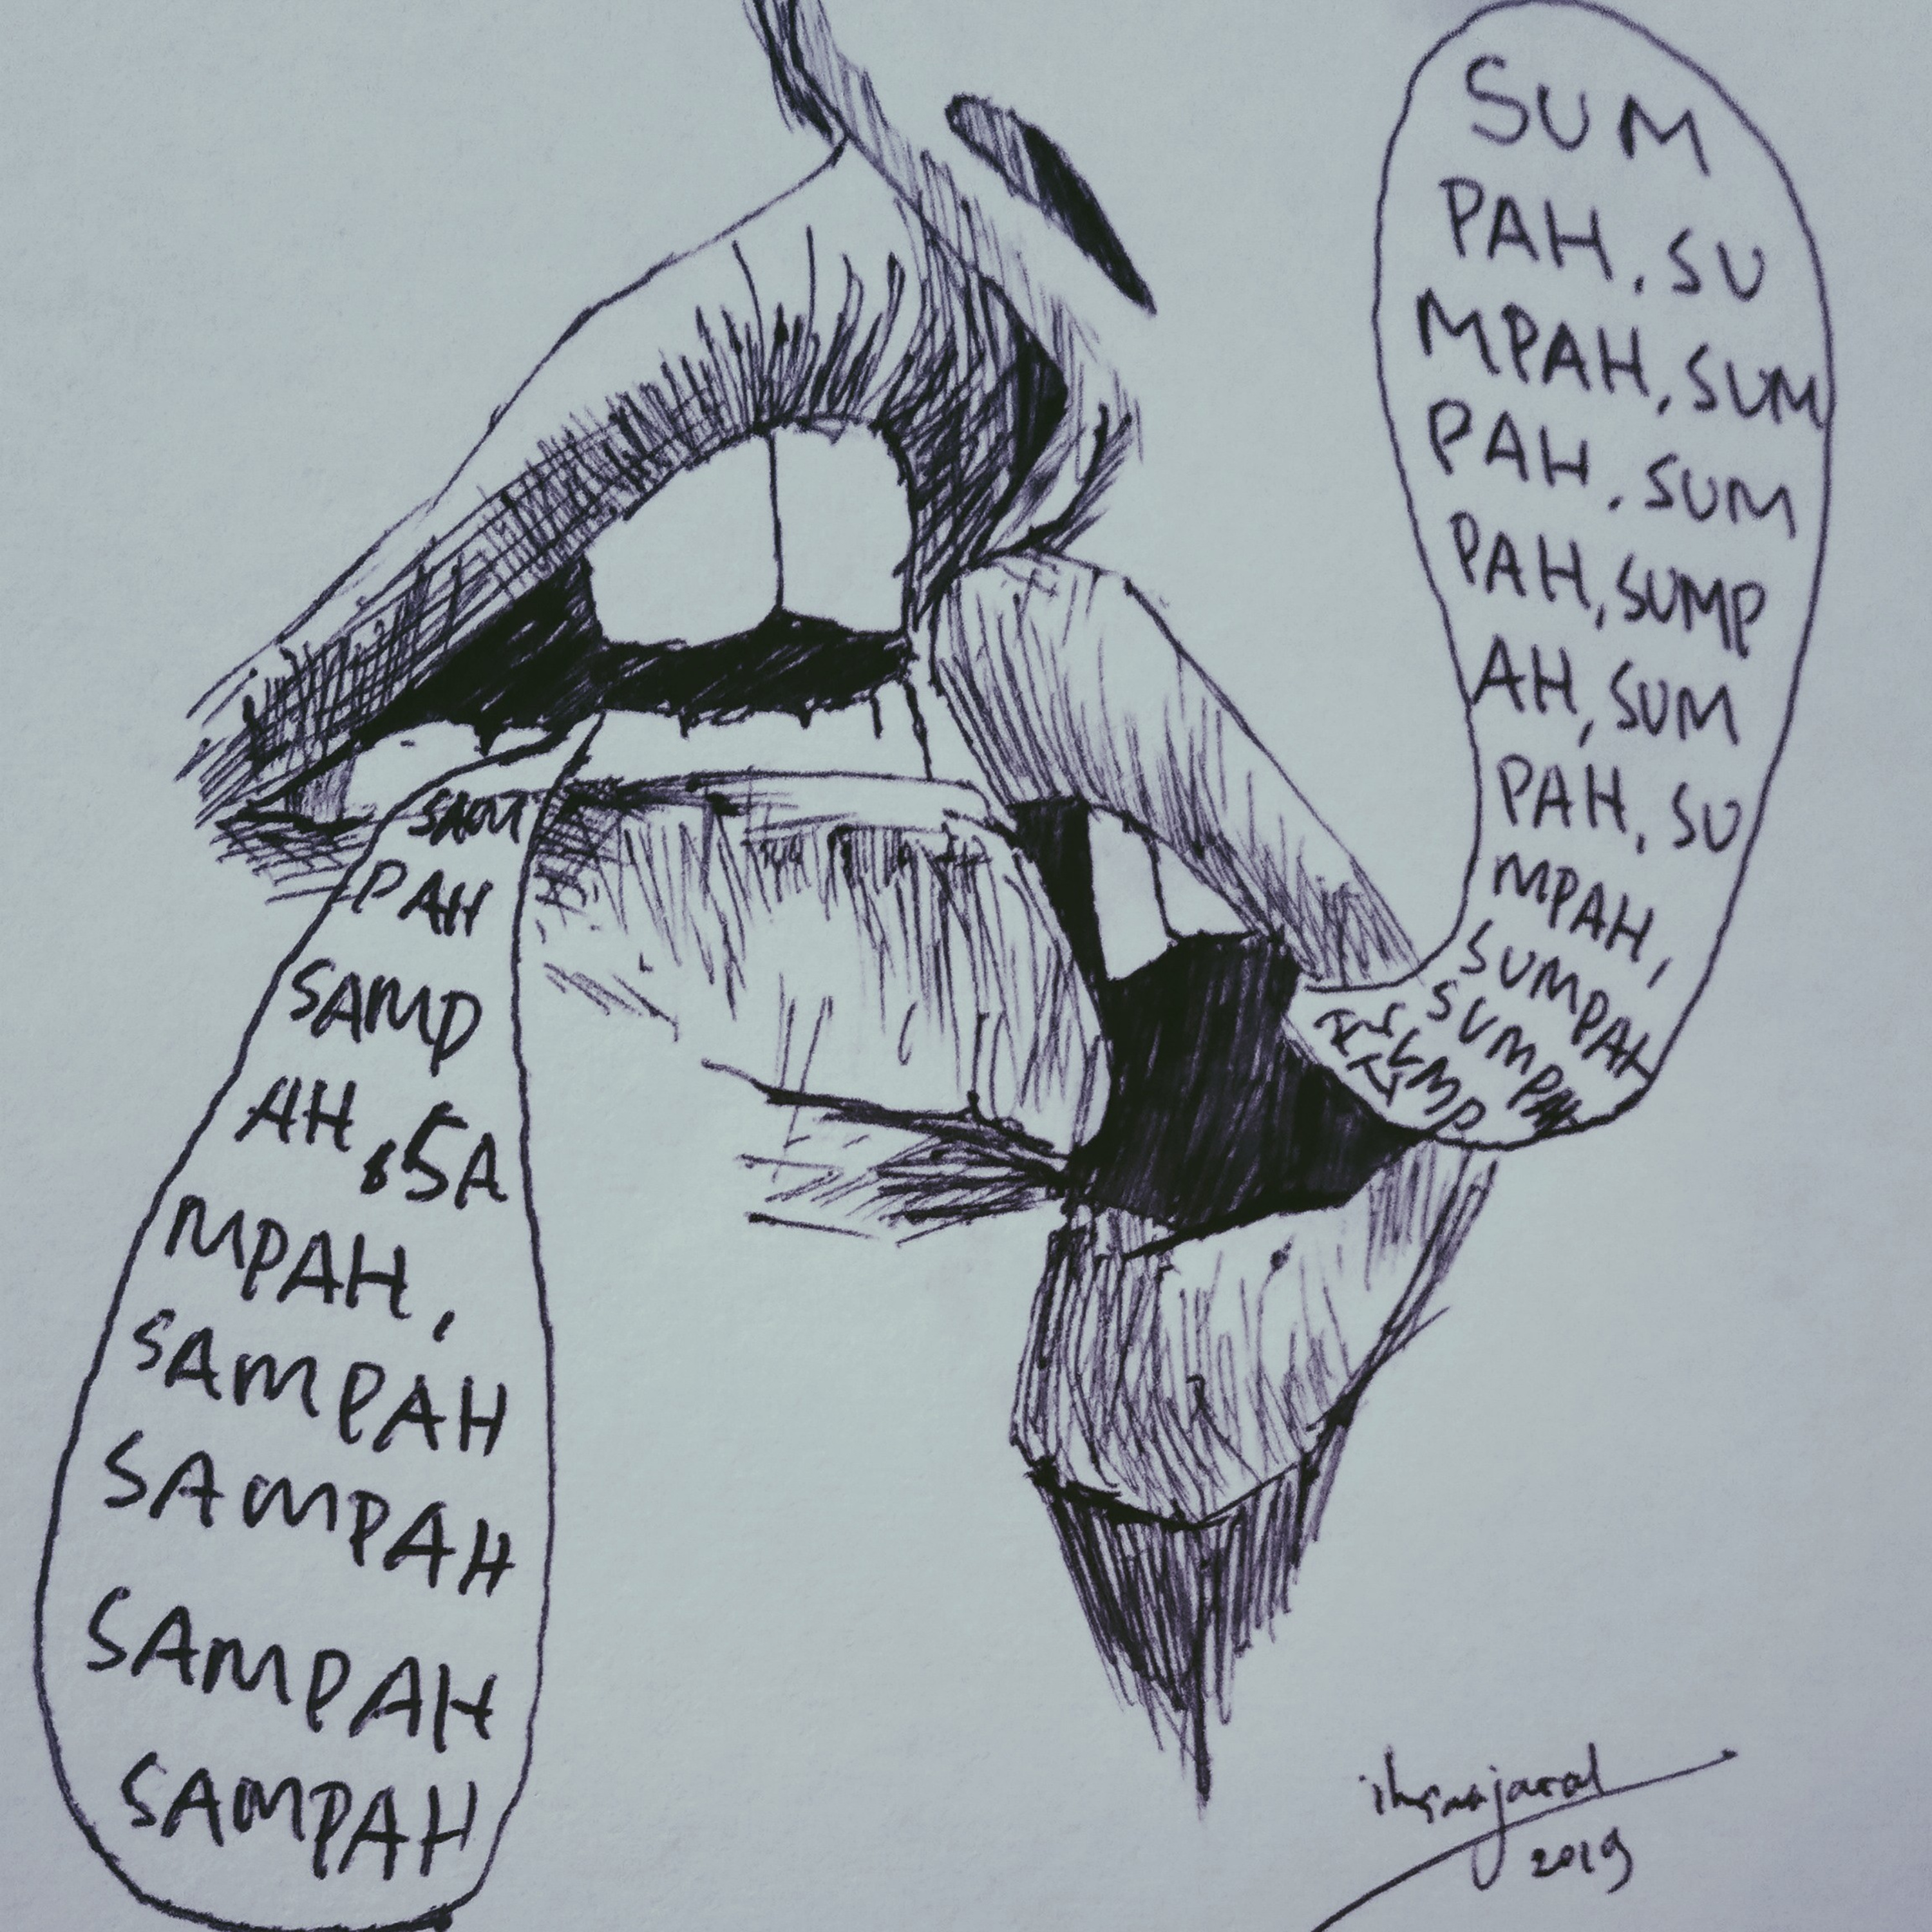 SAM
PAH
SAMP
AH, SA
MPAH,
SAMPAH
SAMPAH
SAMPAH
SAMPAH
SUM
PAH, SU
MPAH, SUM
PAH, SUM
PAH, SUMP
AH, SUM
PAH, SU
MPAH,
SUMPAH
SUMPAH
SUMP
2019